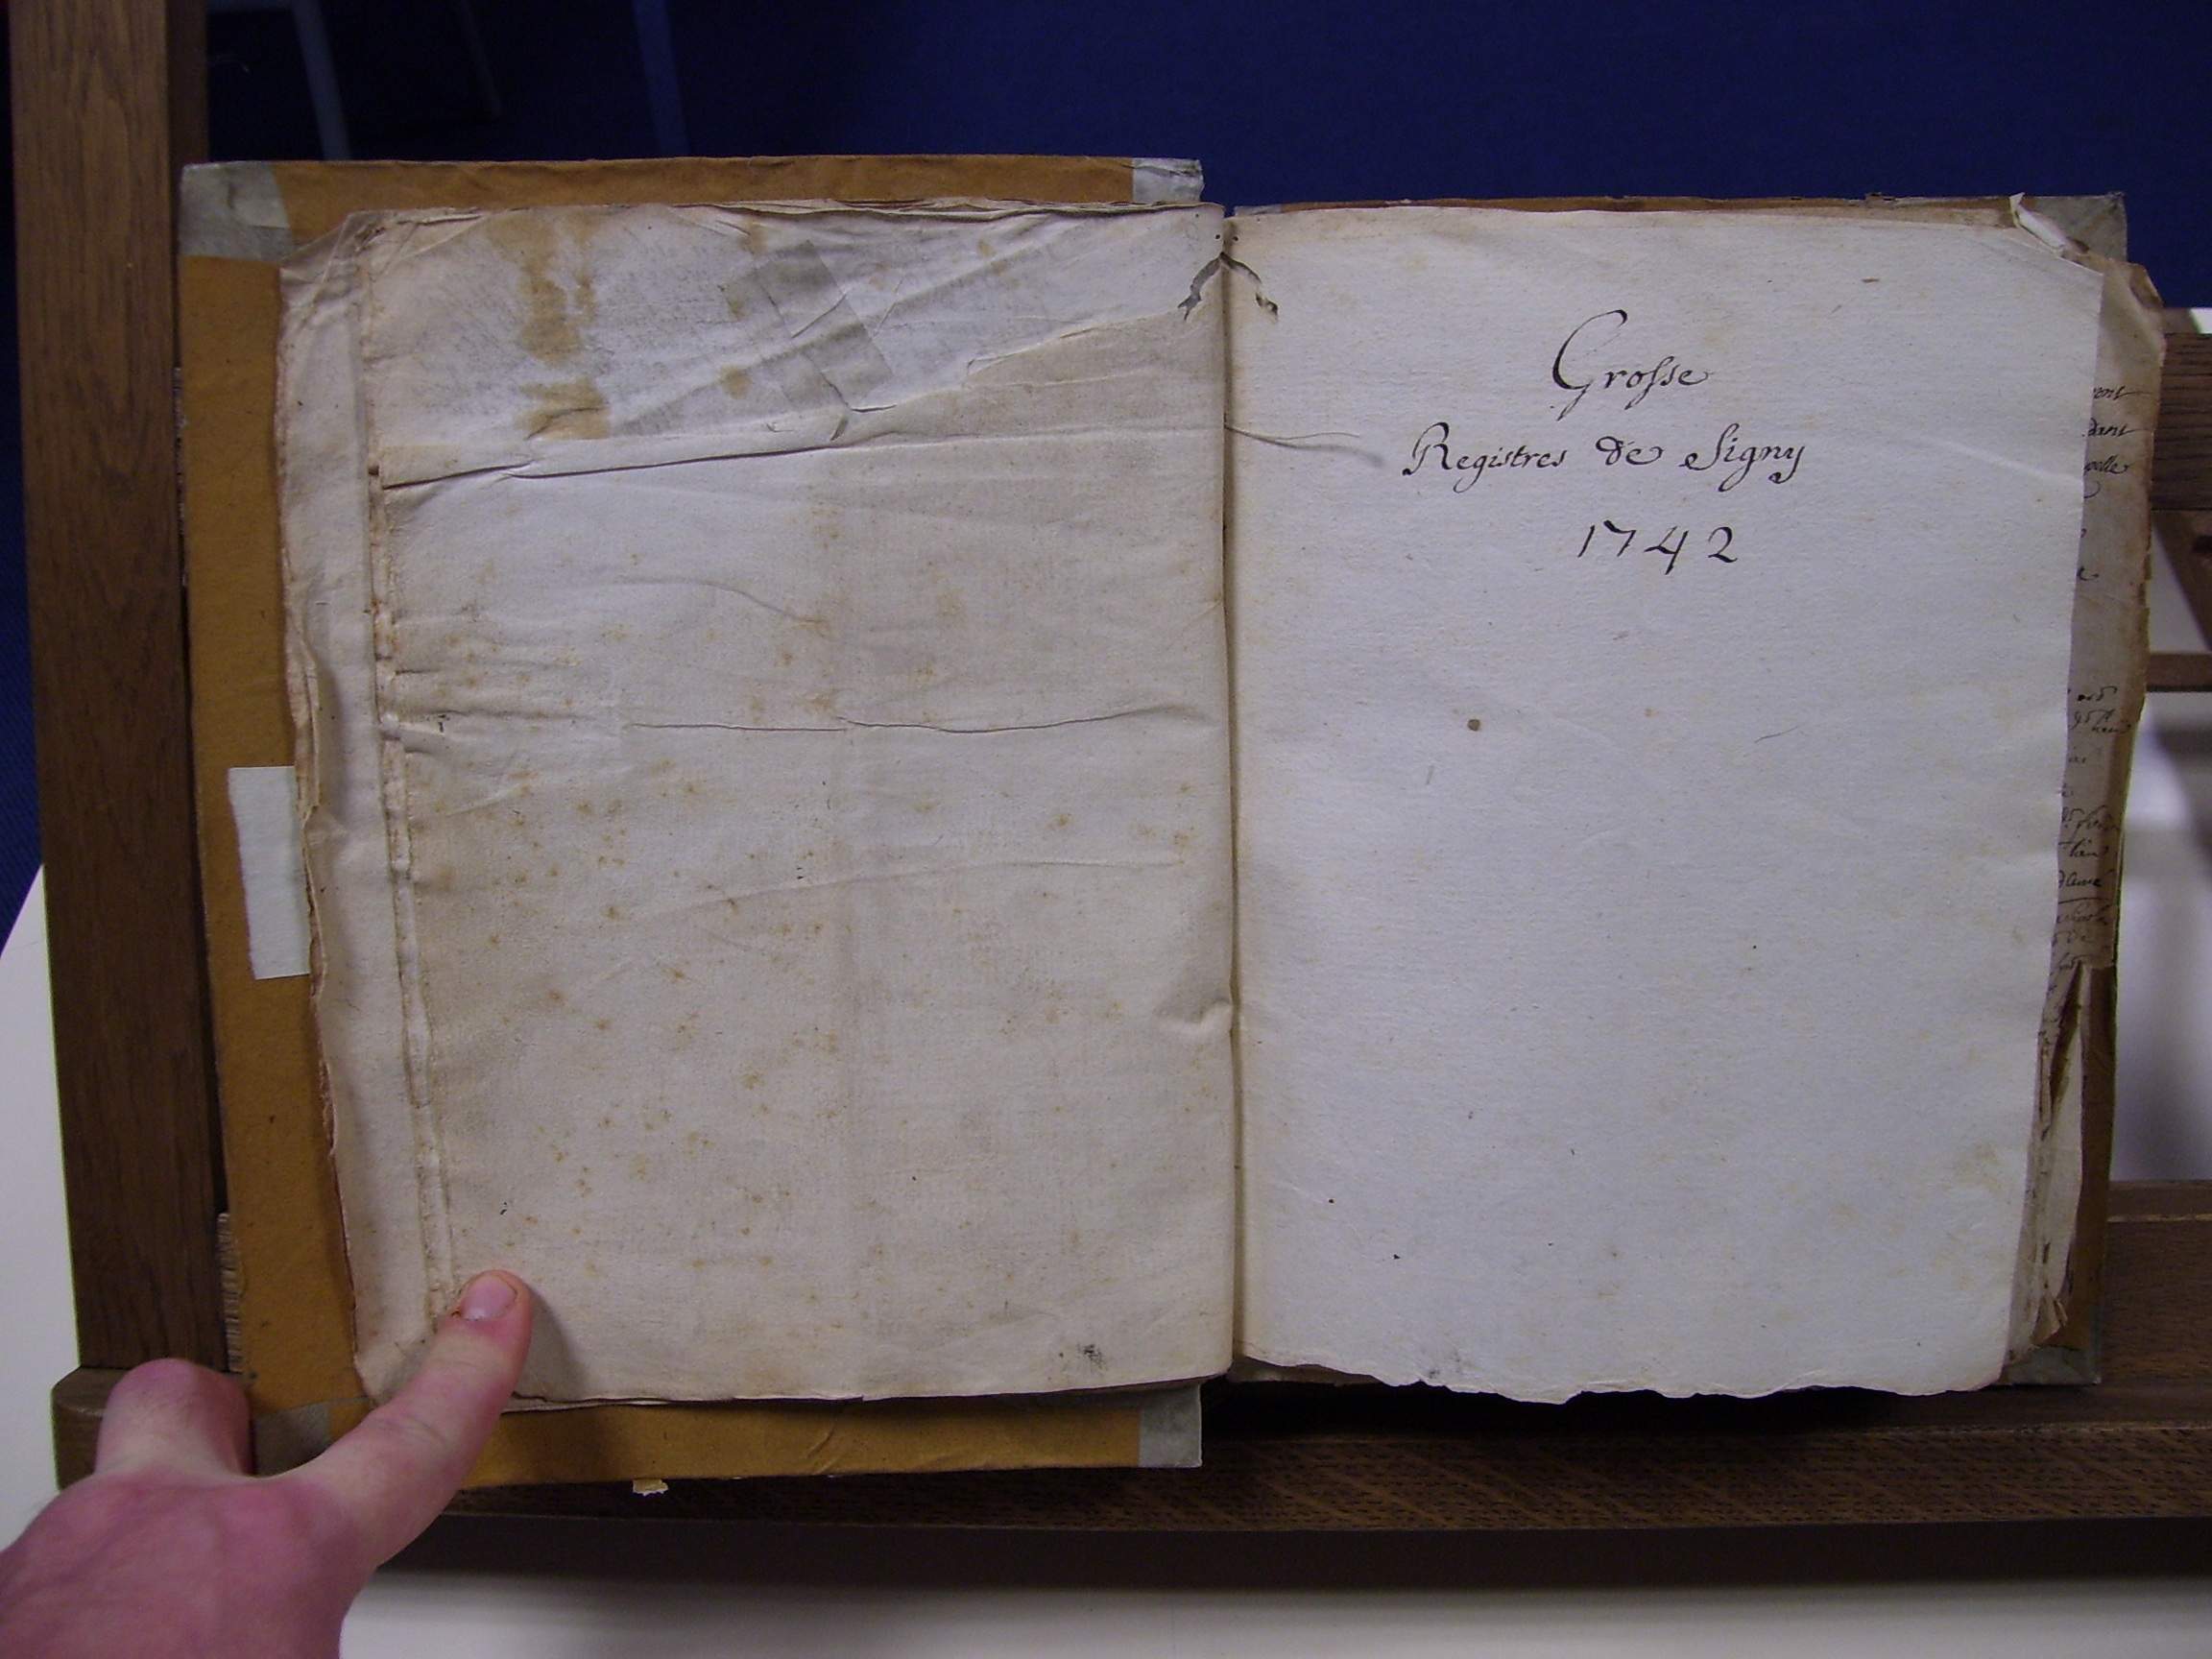 Grosse
Registres de Signy
1742